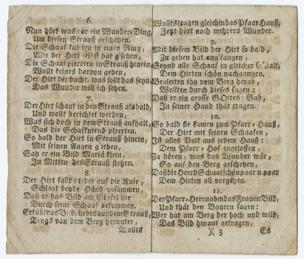 6.
Nun hört was vor ein Wunder-Ding,
Um diesen Strauß geschehen.
Die Schaaf knieten in einen Ring,
Wie der Hirt
Die Schaaf knieten in Strauß hinein,
Wolt keines davon gehen,
Der Hirt der dacht, was soll das seyn,
Das Wunder will ich sehen.
7.
Der Hirt schaut in den Strauß alsbald,
Und wolt berichtet werden,
Was sich doch in dem Strauß aufhalt,
Daß die Schaaf
So bald der Hirt in Strauß hinein,
Mit seinen Augen
Sah er ein Bild Maria klein,
In Mitten des Strauß stehen.
8.
Der Hirt fallt auf die Knie,
Schlagt beyde Händ zusammen,
Daß er das Bild am
Durch seine Schaaf bekommen.
das Bild, aus dem Strauß,
Gings von dem Berg herunter,
Wolts
Wolts tragen gleich in das Pfarr-Hauß,
Jetzt hört noch mehrers Wunder.
9.
Mit diesem Bild der Hirt so bald,
Zu gehen hat angefangen,
Seynd alle Schaaf in gleicher
Dem Hirten schön nachgangen.
Begleiten ihn den Berg herab,
Wollten durch dieses sagen:
Daß er ein grosse GOttes-Gab,
In seiner Hand thät tragen.
10.
So bald sie kamen zum Pfarr-Hauß,
Der Hirt mit seinen Schaafen,
Ist alles Volk aus jedem Hauß
Dem Pfarr-Hof zugeloffen,
Zu hören, was das Wunder wär,
So auf dem Berg geschehen,
Daß die Heerd Schaaf schön paar u. paar
Dem Hirten all vorgehen.
11.
Der Pfarr-Herr nahm das Frauen-Bild,
Und thät den Bauern sagen:
Wer hat am Berg der hoch und wild,
Das Bild hinauf getragen,
X 3
Es